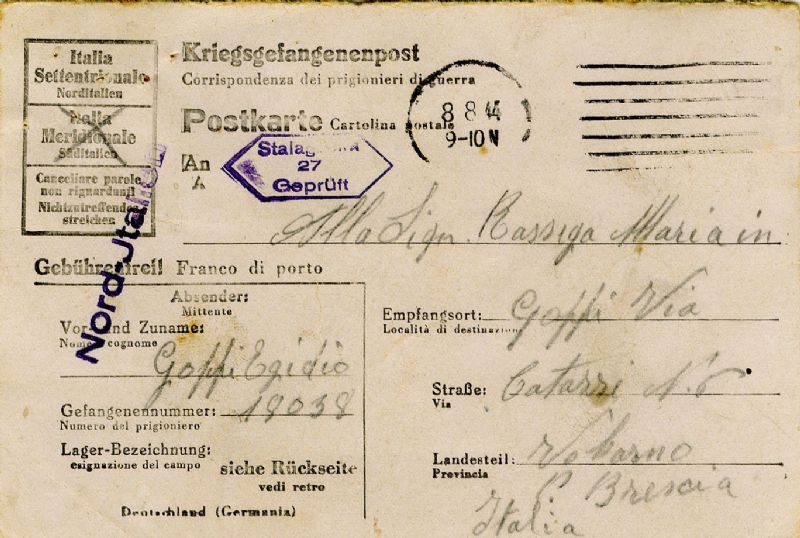 Italia
Settentrionale
Norditalien
Italia
Meridionale
Süditalien
Cancellare parole
non riguardanti
Nichtzutreffendes
streichen
Nord-Italien
Kriegsgefangenenpost
Corrispondenza dei prigionieri di guerra
Postkarte Cartolina postale
8 8 44
9-10 N
An
A
Stalag
27
Geprüft
Alla Sign. Rassiga Maria in
Gebührenfrei! Franco di porto
Absender:
Mittente
Vor- und Zuname:
Nome cognome
Goffi Egidio
Gefangenennummer: 18038
Numero del prigioniero
Lager-Bezeichnung:
esignazione del campo
siehe Rückseite
vedi retro
Deutschland (Germania)
Empfangsort: Goffi Via
Località di destinazione
Straße: N. 6
Via
Landesteil: Vobarno
Provincia
P. Brescia
Italia